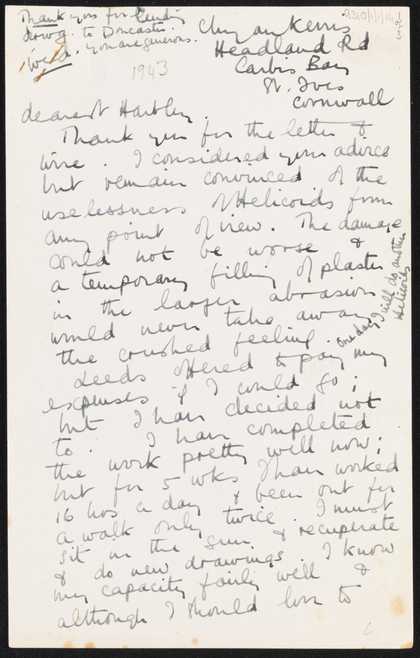 Thank you for sending
drawg. to Doncaster.
You are generous.
1943
Chy an Kerris
Headland Rd
Carbis Bay
St. Ives
Cornwall
dearest Hartley.
Thank you for the letter &
wire. I considered your advice
but remain convinced of the
uselessness of Helicoids from
any point of view. The damage
could not be worse &
a temporary filling of plaster
in the larger abrasion
would never take away
the crushed feeling.
One day I will do another
Helicoids
Leeds offered to pay my
expenses if I could go;
but I have decided not
to. I have completed
the work pretty well now;
but for 5 wks I have worked
16 hrs a day & been out for
a walk only twice. I must
sit in the sun & recuperate
& do new drawings. I know
my capacity fairly well &
although I should love to